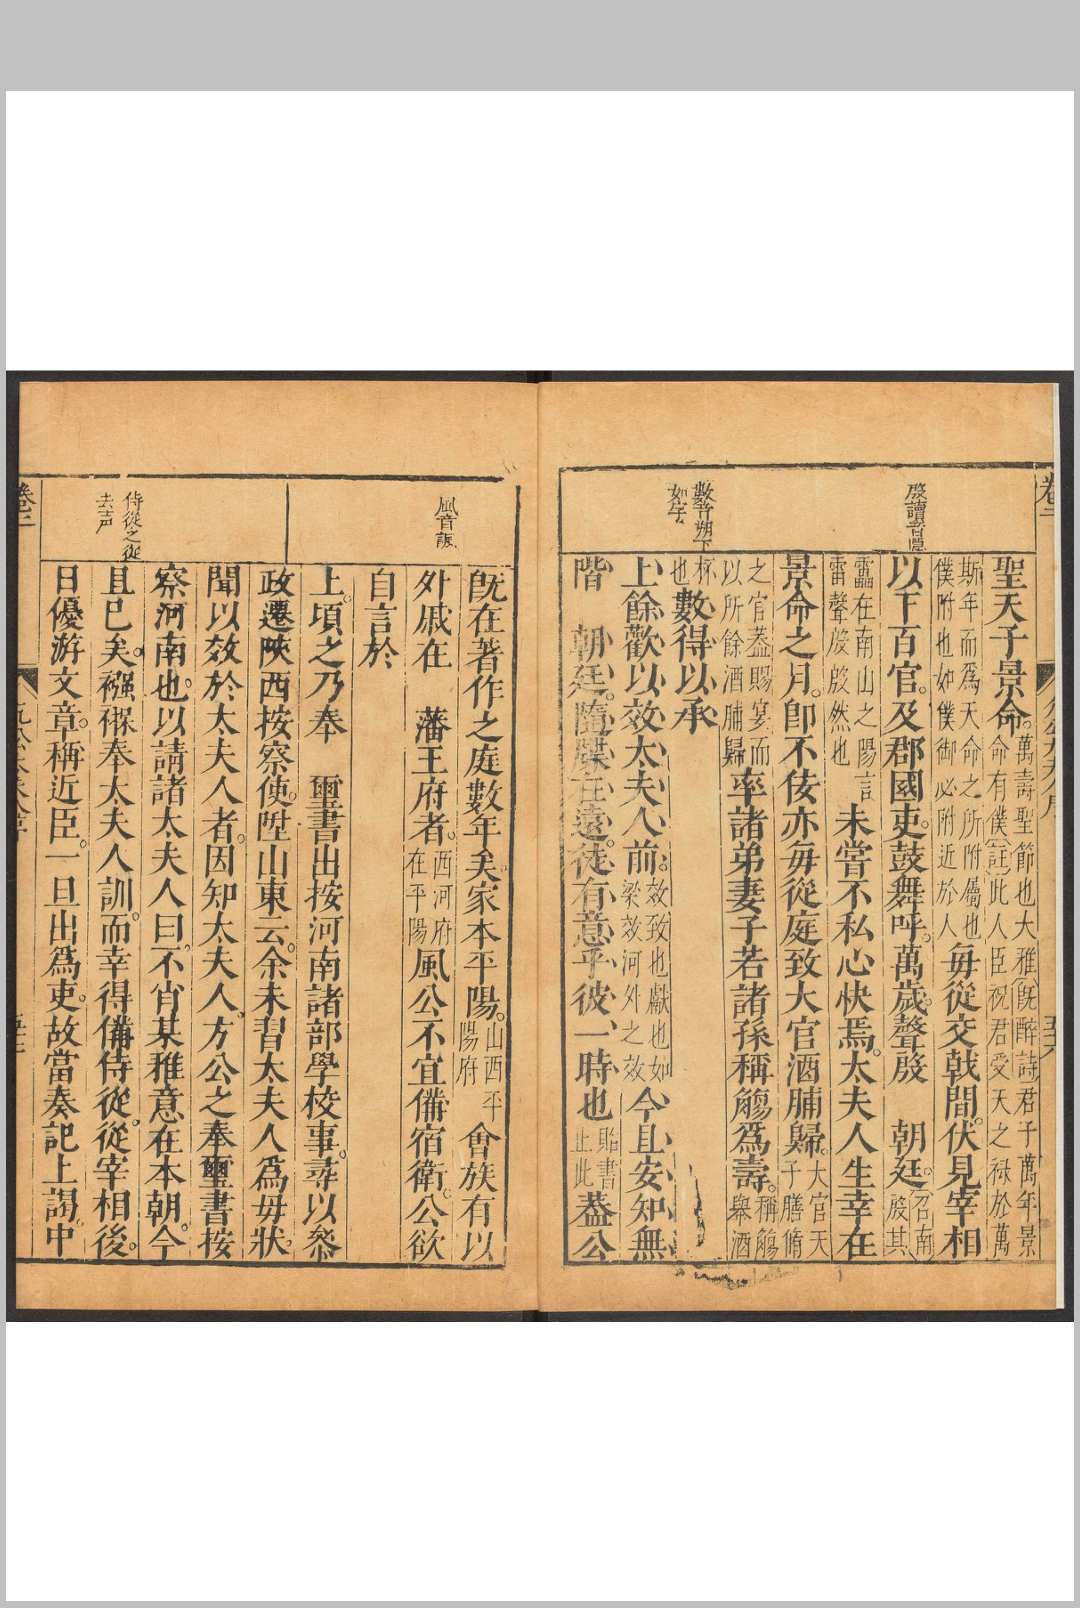 殷讀曰隱
數音朔下
如字
聖天子景命。萬壽聖節也大雅旣醉詩君子萬年景
命有僕註此人臣祝君受天之禄於萬
斯年而爲天命之所附屬也
僕附也如僕御必附近於人毎從交戟間。伏見宰相
以下百官。及郡國吏。鼓舞呼。萬歲。聲殷　朝廷。召南
殷其
靁在南山之陽言
雷聲殷殷然也未嘗不私心快焉。太夫人生幸在
景命之月。卽不佞亦毎從庭致大官酒脯歸。大官天
子膳脩
之官蓋賜宴而
以所餘酒脯歸率諸弟妻子若諸孫稱觴爲壽。稱觴
舉酒
杯
也數得以承
上餘歡以效太夫人前。效致也獻也如
梁效河外之效今且安知無
階　朝廷。隋牒在遠。徒有意乎彼一時也貽書
止此蓋公
風音諷
侍從之從
去声
旣在著作之庭數年矣。家本平陽。山西平
陽府會族有以
外戚在　藩王府者。西河府
在平陽風公不宜備宿衛。公欲
自言於
上。頃之乃奉　璽書出按河南諸部學校事。尋以叅
政遷陝西按察使。陞山東云。余未習太夫人爲毋狀。
聞以效於太夫人者。因知太夫人。方公之奉璽書按
察河南也。以請諸太夫人曰。不肖某雅意在本朝。今
且已矣。襁褓奉太夫人訓。而幸得備侍從。從宰相後。
日優游文章。稱近臣。一旦出爲吏。故當奏記上謁。中
卷二